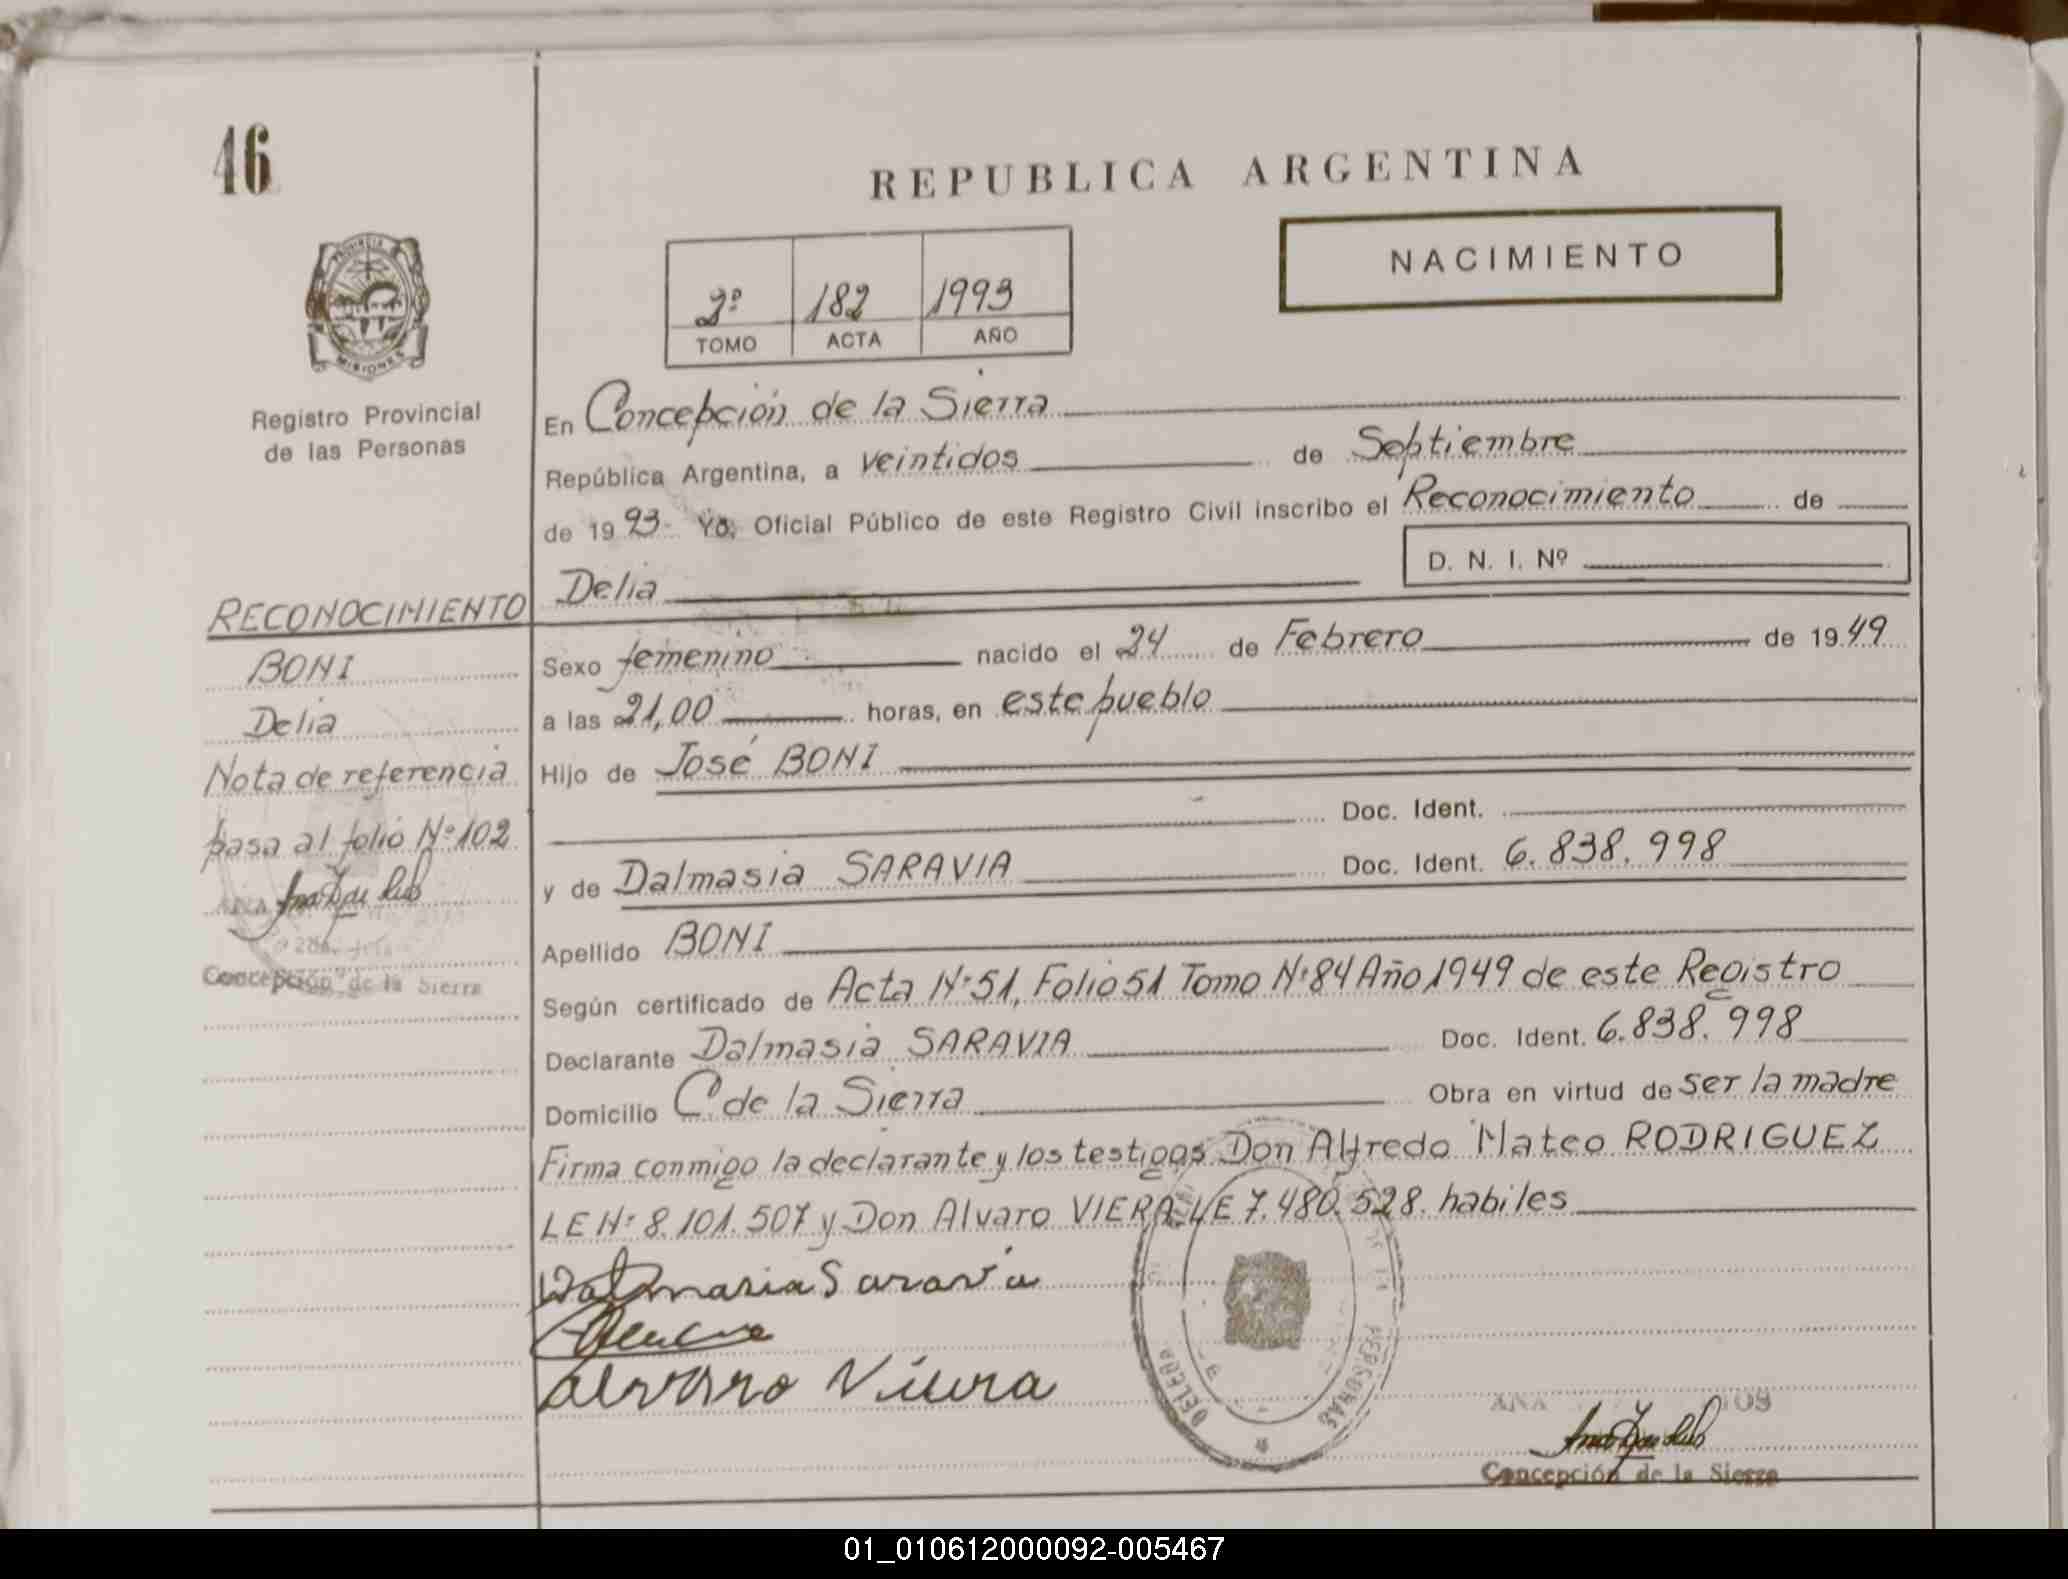 46
REPUBLICA ARGENTINA
NACIMIENTO
2º 182 1993
TOMO ACTA AÑO
PROVINCIA
MISIONES
Registro Provincial
de las Personas
En Concepción de la Sierra
República Argentina, a veintidos de Septiembre
de 1993 Yo, Oficial Público de este Registro Civil inscribo el Reconocimiento de
D. N. I. Nº
Delia
Sexo femenino nacido el 24 de Febrero de 1949
a las 21,00 horas, en este pueblo
Hijo de José BONI
Doc. Ident.
y de Dalmasia SARAVIA Doc. Ident. 6.838.998
Apellido BONI
Según certificado de Acta Nº 51, Folio 51 Tomo Nº 84 Año 1949 de este Registro
Declarante Dalmasia SARAVIA Doc. Ident. 6.838.998
Domicilio C. de la Sierra Obra en virtud de ser la madre
Firma conmigo la declarante y los testigos Don Alfredo Mateo RODRIGUEZ
LE Nº 8.101.507 y Don Alvaro VIERA LE 7.480.528. habiles
Dalmasia Saravia
Alvaro Viera
PERSONAS
ANA
Concepción de la Sierra
RECONOCIMIENTO
BONI
Delia
Nota de referencia
pasa al folio Nº 102
Concepción de la Sierra
01_010612000092-005467